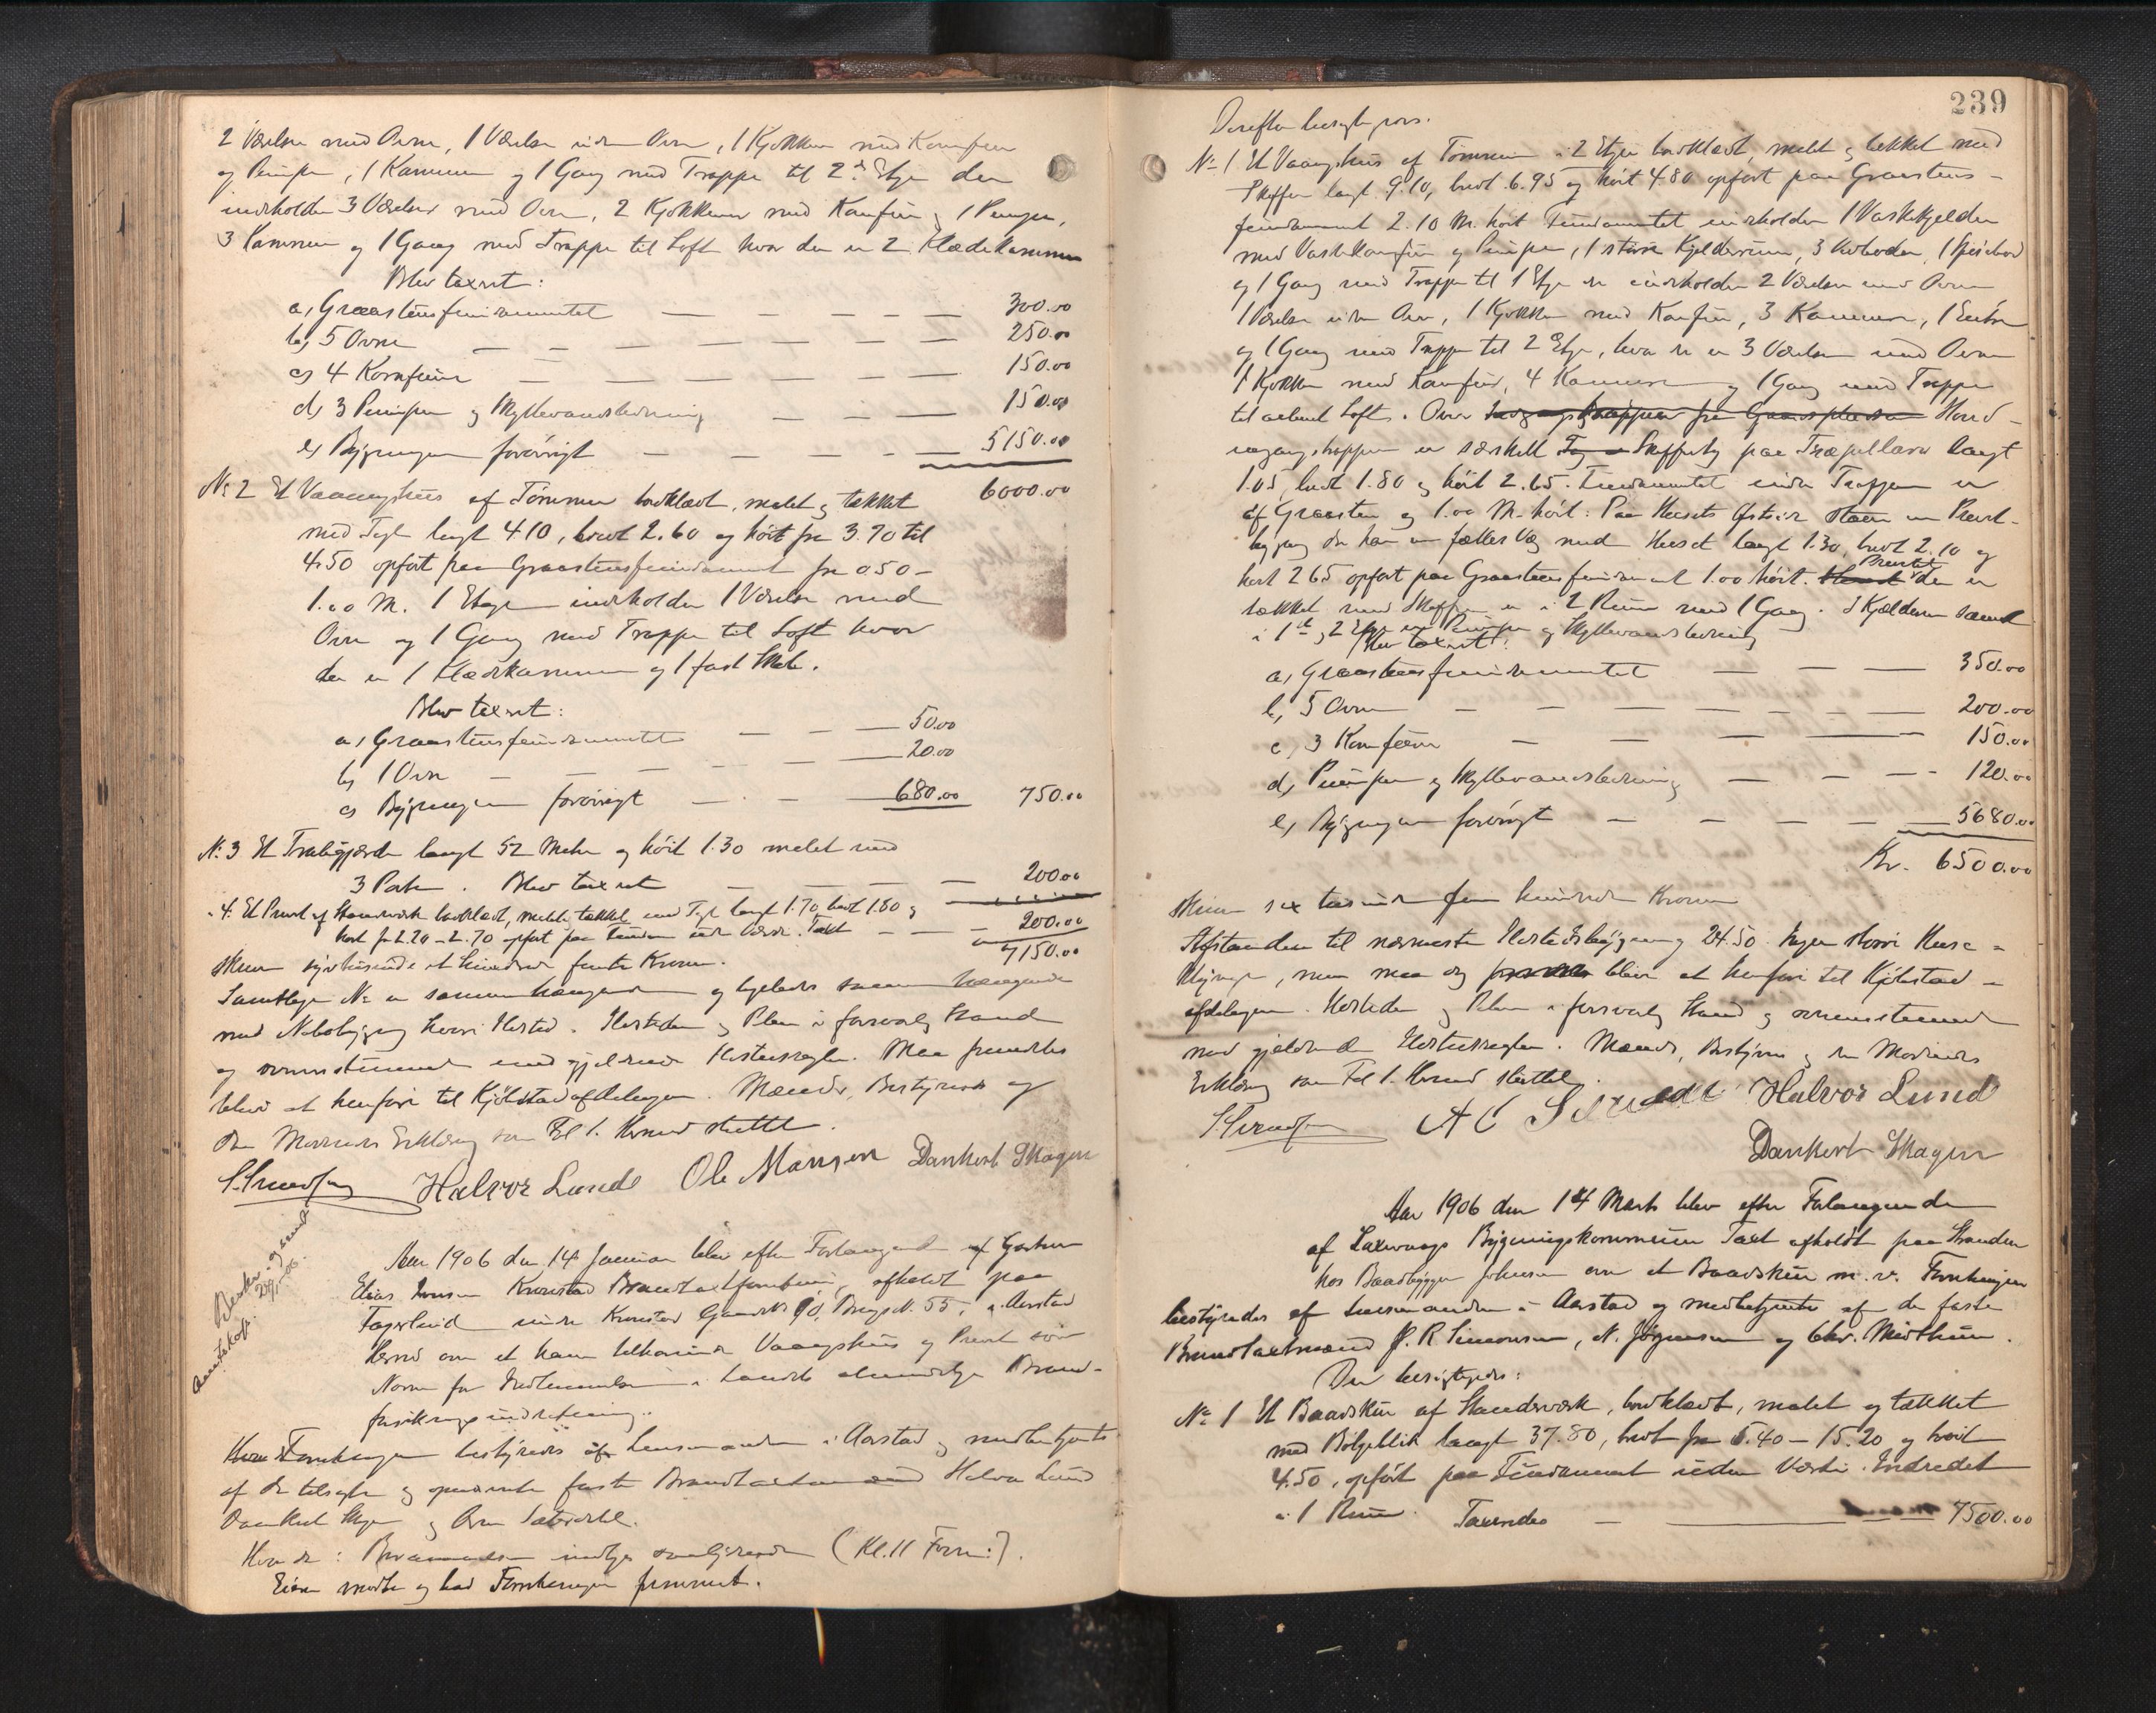 2 Værelser med Ovne, 1 Værelse uden Ovn, 1 Kjøkken med Komfur
og Pumpe, 1 Kammer og 1 Gang med Trappe til 2d Etge der
indeholder 3 Værelser med Ovn, 2 Kjøkkener med Komfur og 1 Pumpe,
3 Kammer og 1 Gang med Trappe til Loft hvor der er 2 Klædekammer
Blev taxeret:
a, Graastensfundamentet — 300.00
b, 5 Ovne — 250.00
c, 4 Komfurer — 150.00
d, 3 Pumper og Skyllevandsledning — 150.00
e, Bygningen forøvrigt — 5150.00
6000.00
No 2 Et Vaaningshus af Tømmer bordklædt, malet og tækket
med Tegl langt 4.10, bredt 2.60 og høit fra 3.70 til
4.50 opført paa Graastensfundament fra 0.50 –
1.00 M. 1 Etage indeholder 1 Værelse med
Ovn og 1 Gang med Trappe til Loft hvor
der er 1 Klædekammer og 1 fast Skab.
Blev taxeret:
a, Graastensfundamentet — 50.00
b, 1 Ovn — 20.00
c, Bygningen forøvrigt — 680.00 750.00
No 3 Et Stakitgjærde langt 52 Meter og høit 1.30 malet med
3 Porte. Blev taxeret — 200.00
" 4. Et Privet af Standværk bordklædt, malet, tækket med Tegl langt 1.70, bredt 1.80 og
høit fra 2.20 – 2.70 opført paa Fundam uden Værdi. Taxt — 200.00
7150.00
skriver syvtusinde et hundrede femti Kroner.
Samtlige No er sammenhængende og ligeledes sammenhængende
med Nabobygning hvori Ildsted. Ildsteder og Piber i forsvarlig Stand
og overensstemmende med gjældende Ildstedsregler. Maa fremdeles
blive at henføre til Kjøbstadafdelingen. Mænds, Bestyrers og
den Mødendes Erklæring som Fol 1. Hermed sluttet.
Halvor Lunde Ole Monsen Dankert Skagen
Beskr. og sendt
20/1-06.
Aar 1906 den 14 Januar blev efter Forlangende af Gartner
Elias Kronstad Brandtaxtforretning afholdt paa
under Kronstad Gaards No, Brugs N. 55, i Aarstad
Herred over et ham tilhørende Vaaningshus og Privet som
Norm for Indlemmelse i Landets almindelige Brand-
forsikringsindretning.
Forretningen bestyredes af Lensmanden i Aarstad og medbetjentes
af de tilsagte og opnævnte faste Brandtaxtmænd Halvor Lund
Dankert Skagen og
Eieren mødte og bad Forretningen fremmet.
239
Derefter besigtigedes.
No 1 Et Vaaningshus af Tømmer i 2 Etger bordklædt, malet og tækket med
Skiffer langt 9.10, bredt 6.95 og høit 4.80 opført paa Graastens-
fundament 2.10 M. høit. Fundamentet indeholder 1 Vaskekjelder
med Vaskekomfur og Pumpe, 1 større Kjelderrum, 3 Vedboder, 1 Spisebod
og 1 Gang med Trappe til 1 Etge der indeholder 2 Værelser med Ovn
1 Værelse uden Ovn, 1 Kjøkken med Komfur, 3 Kammer, 1 Entre
og 1 Gang med Trappe til 2 Etge, hvor der er 3 Værelser med Ovn
1 Kjøkken med Komfur, 4 Kammer og 1 Gang med Trappe
til aabent Loft. Over Hoved-
indgangstrappen er særskilt Skiffertag paa Træpillarer langt
1.05, bredt 1.80 og høit 2.65. Fundamentet under Trappen er
af Graasten og 1.00 M. høit. Paa Husets Østside staar en Privet-
bygning der har en fælles Væg med Huset langt 1.30, bredt 2.10 og
høit 2.65 opført paa Graastensfundament 1.00 høit. Privetet der er
tækket med Skiffer er i 2 Rum med 1 Gang. I Kjælderen samt
i 1ste og 2 Etge er Pumpe og Skyllevandsledning
Blev taxeret:
a, Graastensfundamentet — 350.00
b, 5 Ovne — 200.00
c, 3 Komfurer — 150.00
d, Pumper og Skyllevandsledning — 120.00
e, Bygningen forøvrigt — 5680.00
Kr. 6500.00
skriver sex tusinde fem hundrede Kroner
Afstanden til nærmeste Ildstedsbygning 24.50. Ingen større Huse
men maa dog blive at henføre til Kjøbstad-
afdelingen. Ildsteder og Piber i forsvarlig Stand og overensstemmende
med gjældende Ildstedsregler. Mænds, Bestyrers og den Mødendes
Erklæring som Fol 1. Hermed sluttet.
Halvor Lund
Dankert Skagen
Aar 1906 den 14 Marts blev efter Forlangende
af Laxevaags Bygningskommission Taxt afholdt paa Stranden
hos Baadbygger Johnsen over et Baadskur m. v. Forretningen
bestyredes af Lensmanden i Aarstad og medbetjentes af de faste
Brandtaxtmænd J. R. Simonsen, N. Jørgensen og Chr. Midthun.
Der besigtigedes:
No 1 Et Baadskur af Standværk, bordklædt, malet og tækket
med Bølgeblik langt 37.80, bredt fra 6.40 – 15.20 og høit
4.50, opført paa Fundament uden Værdi. Indredet
i 1 Rum. Taxeredes — 7500.00